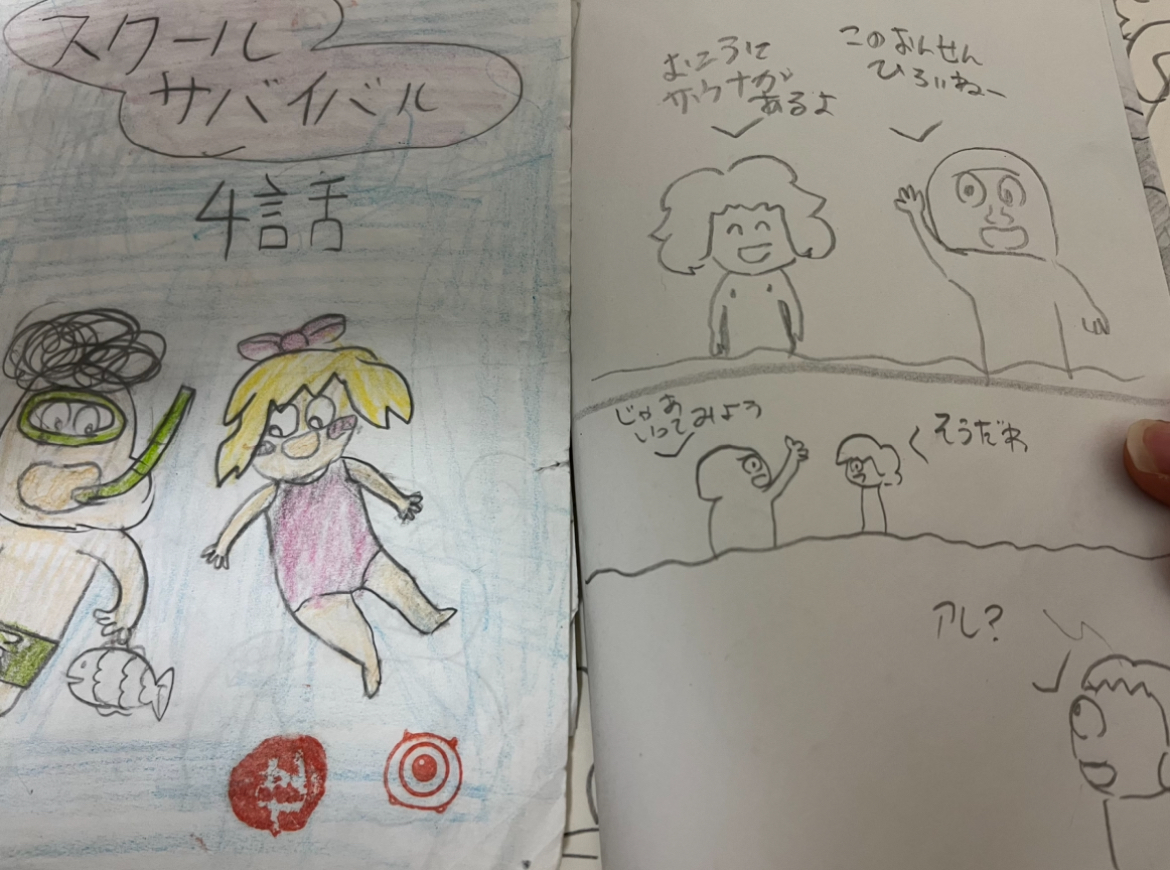 スクール
サバイバル
4話
このおんせん
ひろいねー
むこうに
サウナが
あるよ
じゃあ
いってみよう
そうだね
アレ?